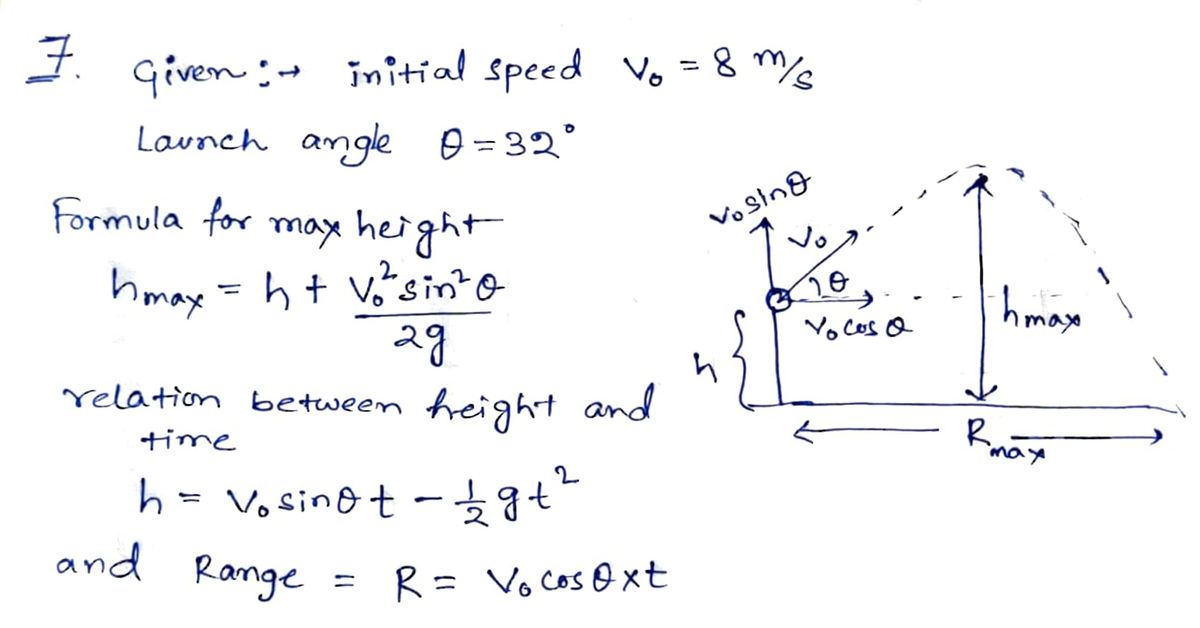 7. Given :→ initial speed V₀ = 8 m/s
Launch angle θ = 32°
Formula for max height
hmax = h + V₀² sin² θ / 2g
relation between height and
time
h = V₀ sinθ t - 1/2 g t²
and Range = R = V₀ cos θ × t
V₀ sinθ
V₀
θ
V₀ cos θ
h
hmax
Rmax